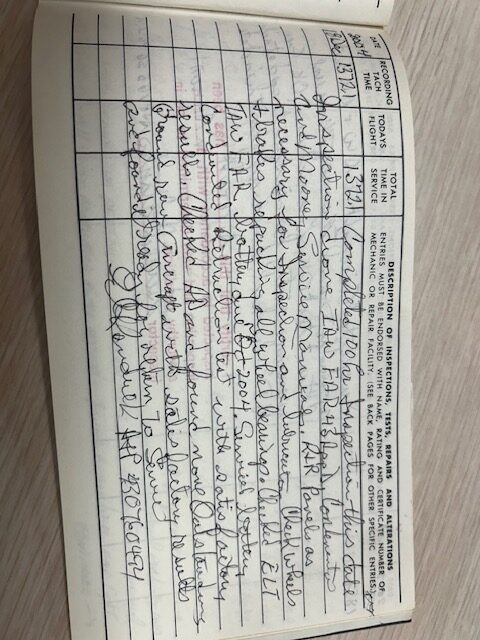 DATE
RECORDING TACH TIME
TODAYS FLIGHT
TOTAL TIME IN SERVICE
DESCRIPTION OF INSPECTIONS, TESTS, REPAIRS AND ALTERATIONS
ENTRIES MUST BE ENDORSED WITH NAME, RATING AND CERTIFICATE NUMBER OF
MECHANIC OR REPAIR FACILITY. (SEE BACK PAGES FOR OTHER SPECIFIC ENTRIES)
Dec 1372.1 1372.1 Completed 100 hr Inspection this date
Inspection done IAW FAR 43 App D
and Service Manuals. Panels as
necessary for Inspection and lubrication Check wheels
& brakes repacking all wheel bearings. Checked ELT
IAW FAR, battery due Oct 2004, Serviced battery
Conducted test with satisfactory
results, Checked ADs and found none Outstanding
Ground run aircraft with satisfactory results
and found ready for return to Service